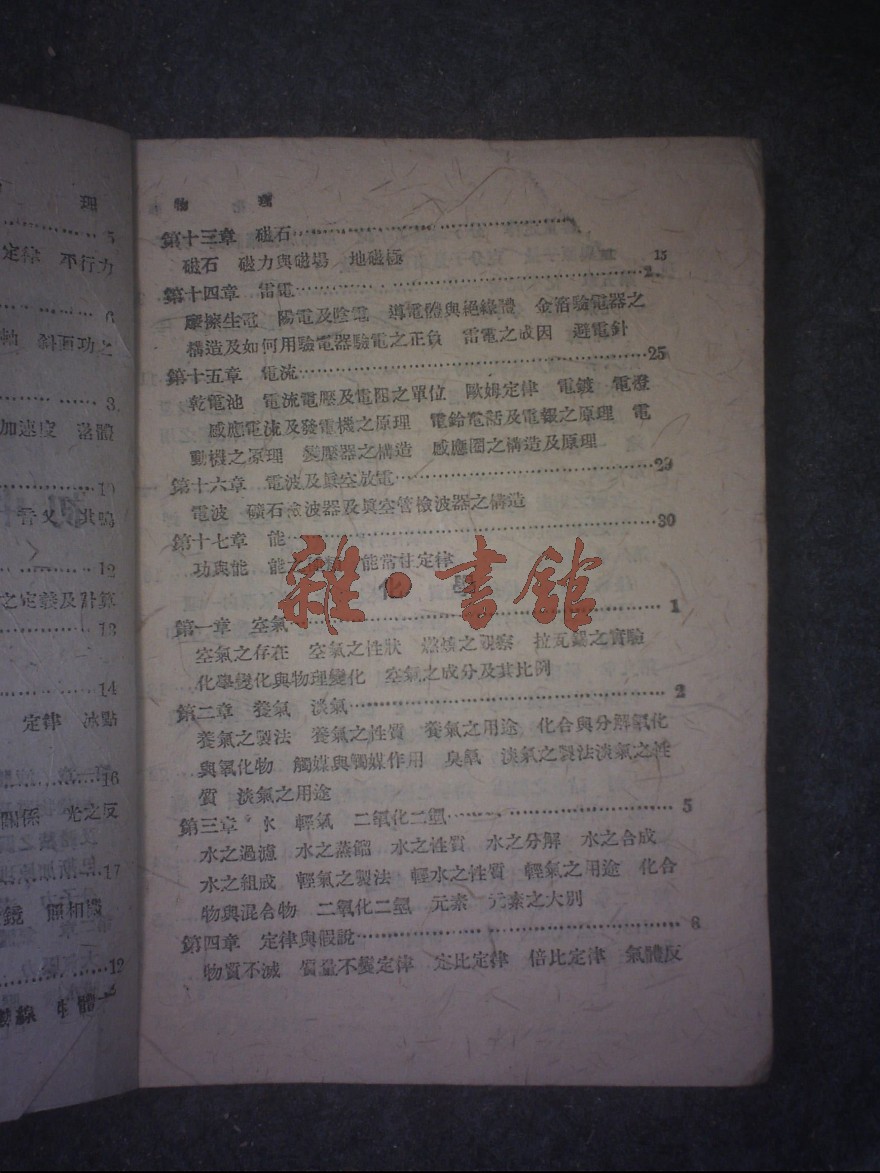 理
5
定律 不行力
6
斜面功之
3
加速度 落體
10
共鳴
12
之定義及計算
13
14
定律 冰點
16
關係 光之反
17
鏡 照相機
物 理
第十三章 磁石
磁石 磁力與磁場 地磁極 15
第十四章 雷電 2
摩擦生電 陽電及陰電 導電體與絕緣體 金箔驗電器之
構造及如何用驗電器驗電之正負 雷電之成因 避電針
第十五章 電流 25
乾電池 電流電壓及電阻之單位 歐姆定律 電鍍 電燈
感應電流及發電機之原理 電鈴電話及電報之原理 電
動機之原理 變壓器之構造 感應圈之構造及原理
第十六章 電波及眞空放電 29
電波 礦石檢波器及眞空管檢波器之構造
第十七章 能 30
功與能 能 能常住定律
化 學
雜·書館
第一章 空氣 1
空氣之存在 空氣之性狀 燃燒之觀察 拉瓦錫之實驗
化學變化與物理變化 空氣之成分及其比例
第二章 養氣 淡氣 2
養氣之製法 養氣之性質 養氣之用途 化合與分解氧化
與氧化物 觸媒與觸媒作用 臭氧 淡氣之製法淡氣之性
質 淡氣之用途
第三章 水 輕氣 二氧化二氫 5
水之過濾 水之蒸餾 水之性質 水之分解 水之合成
水之組成 輕氣之製法 輕水之性質 輕氣之用途 化合
物與混合物 二氧化二氫 元素 元素之大別
第四章 定律與假說 8
物質不滅 質量不變定律 定比定律 倍比定律 氣體反